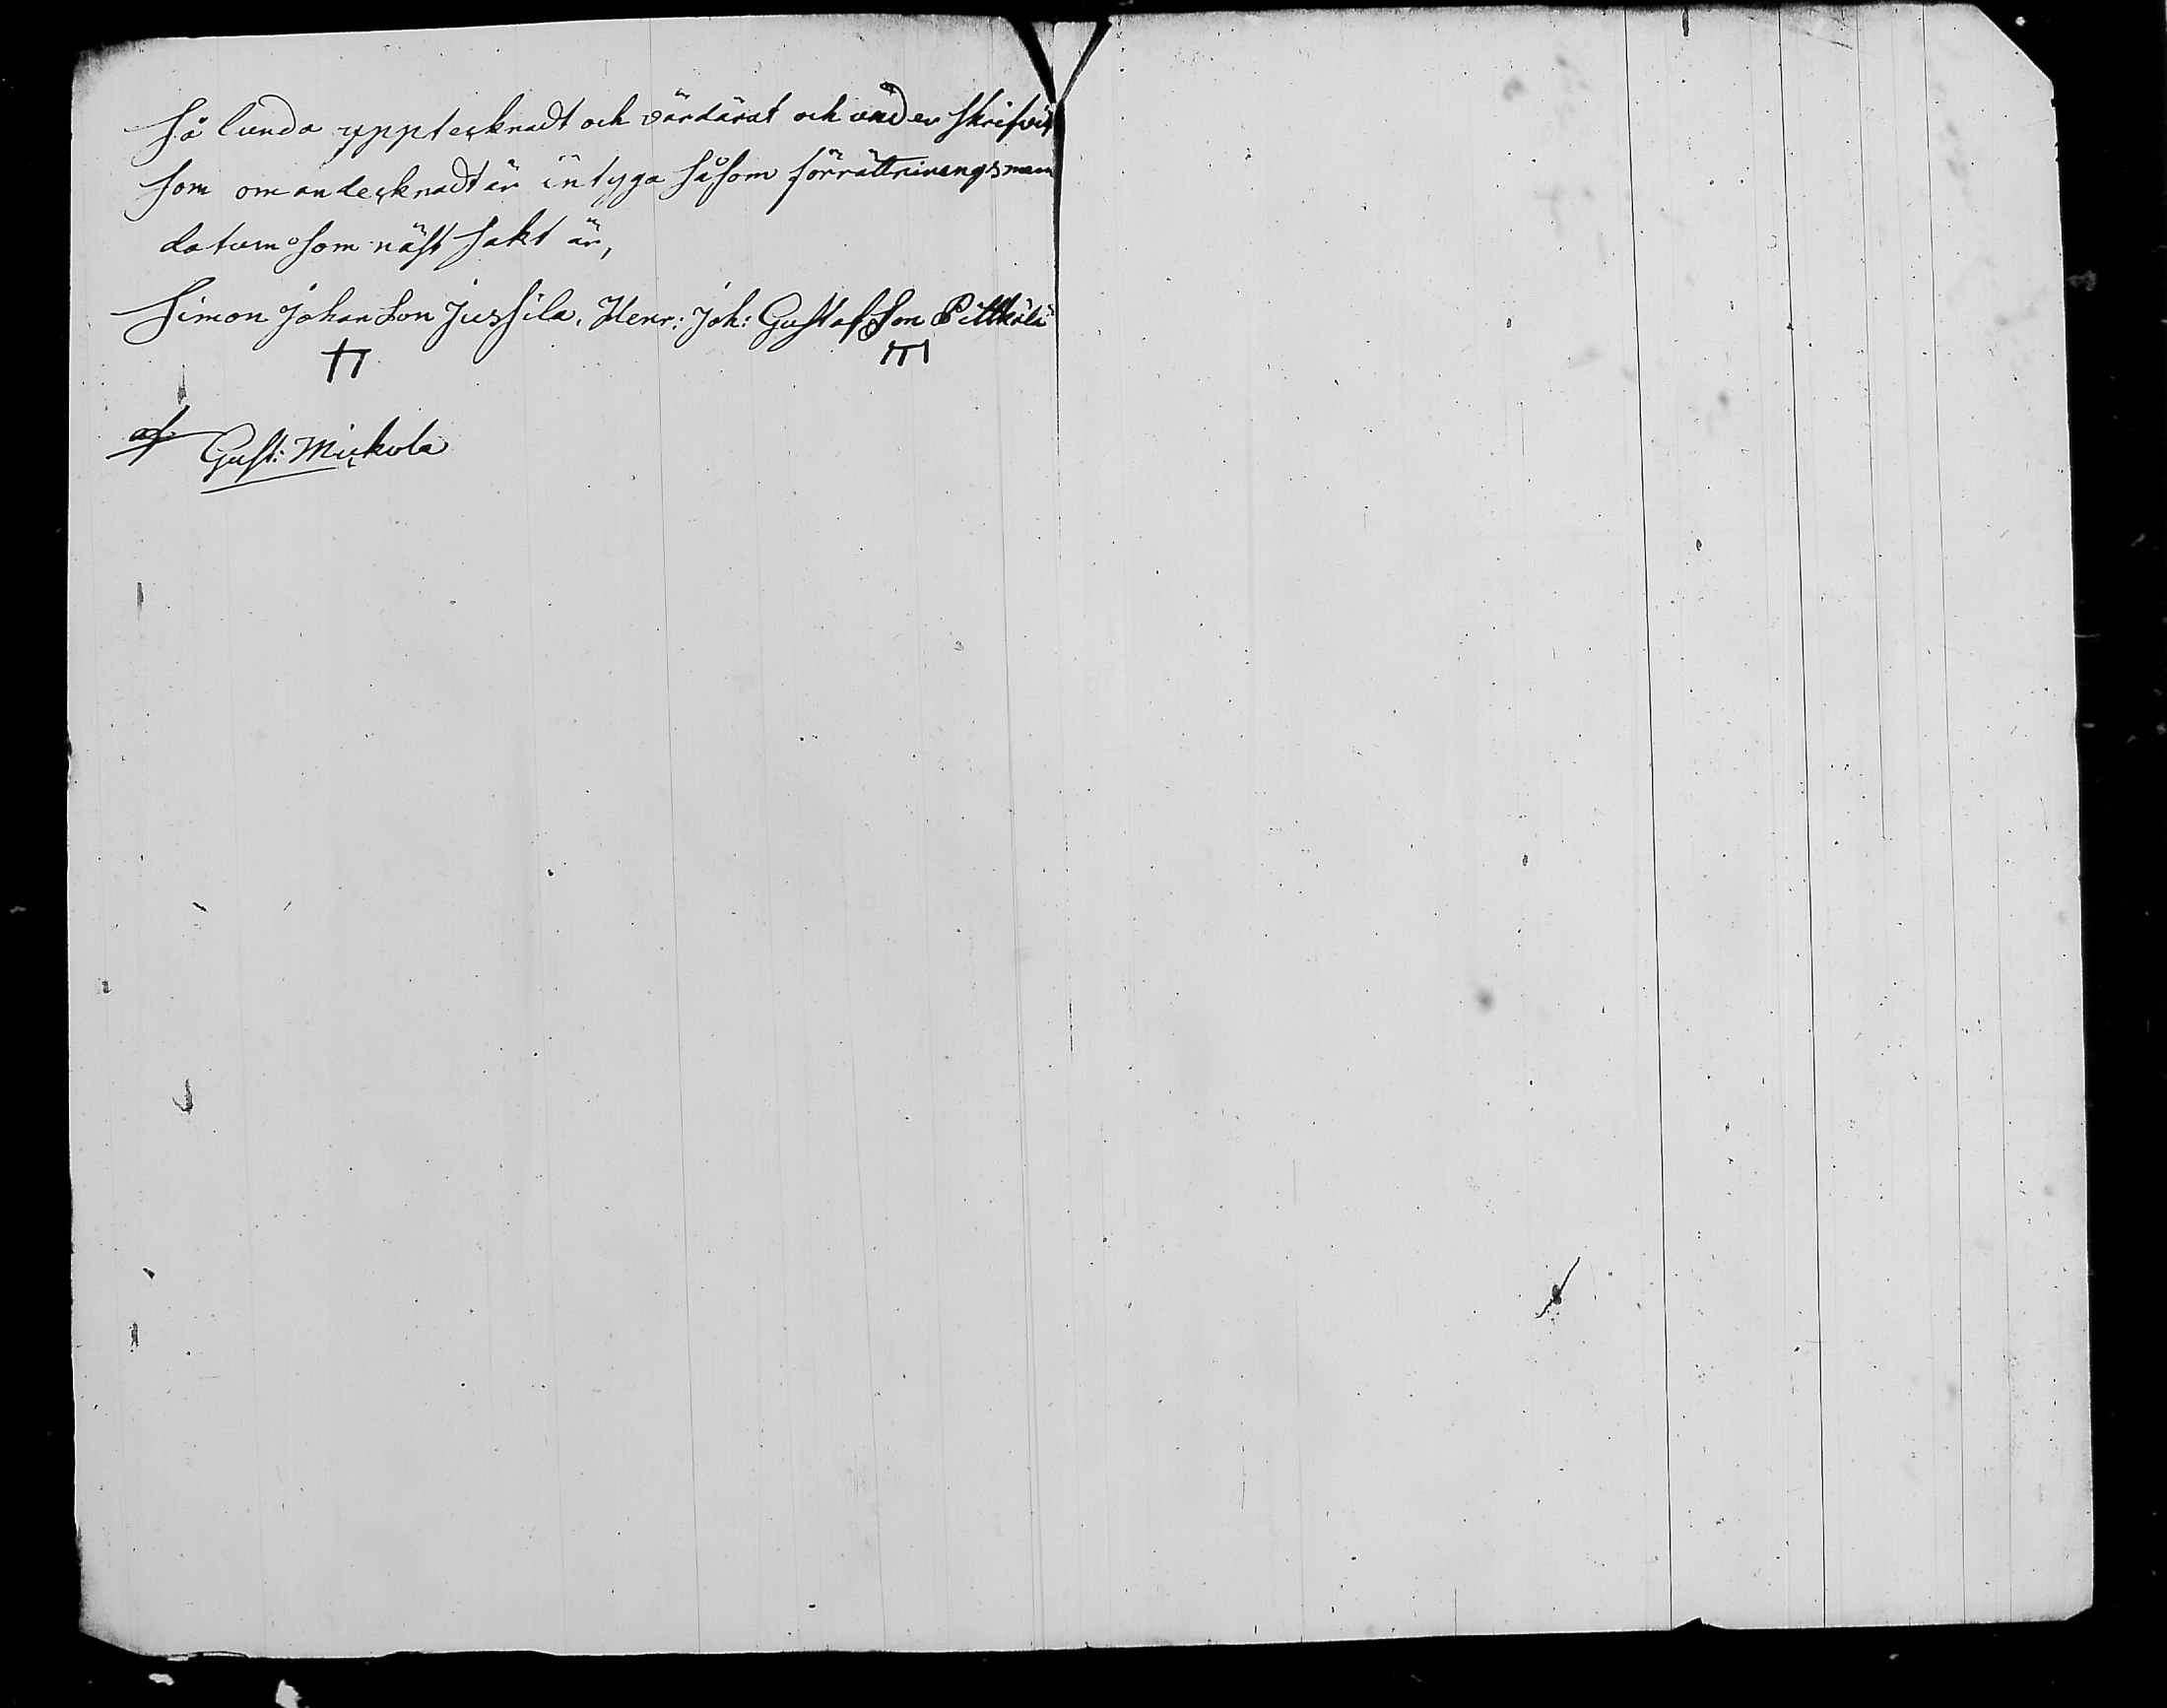 Så lunda upptecknadt och värdärat och under skrifvit
som om andecknadt är intyga såsom förrättningsmen
datum som näst sakt är,
Simon Johan Son Jussila. Henr: Joh: Gustaf Son Pittkälä
af Gust: Mickola